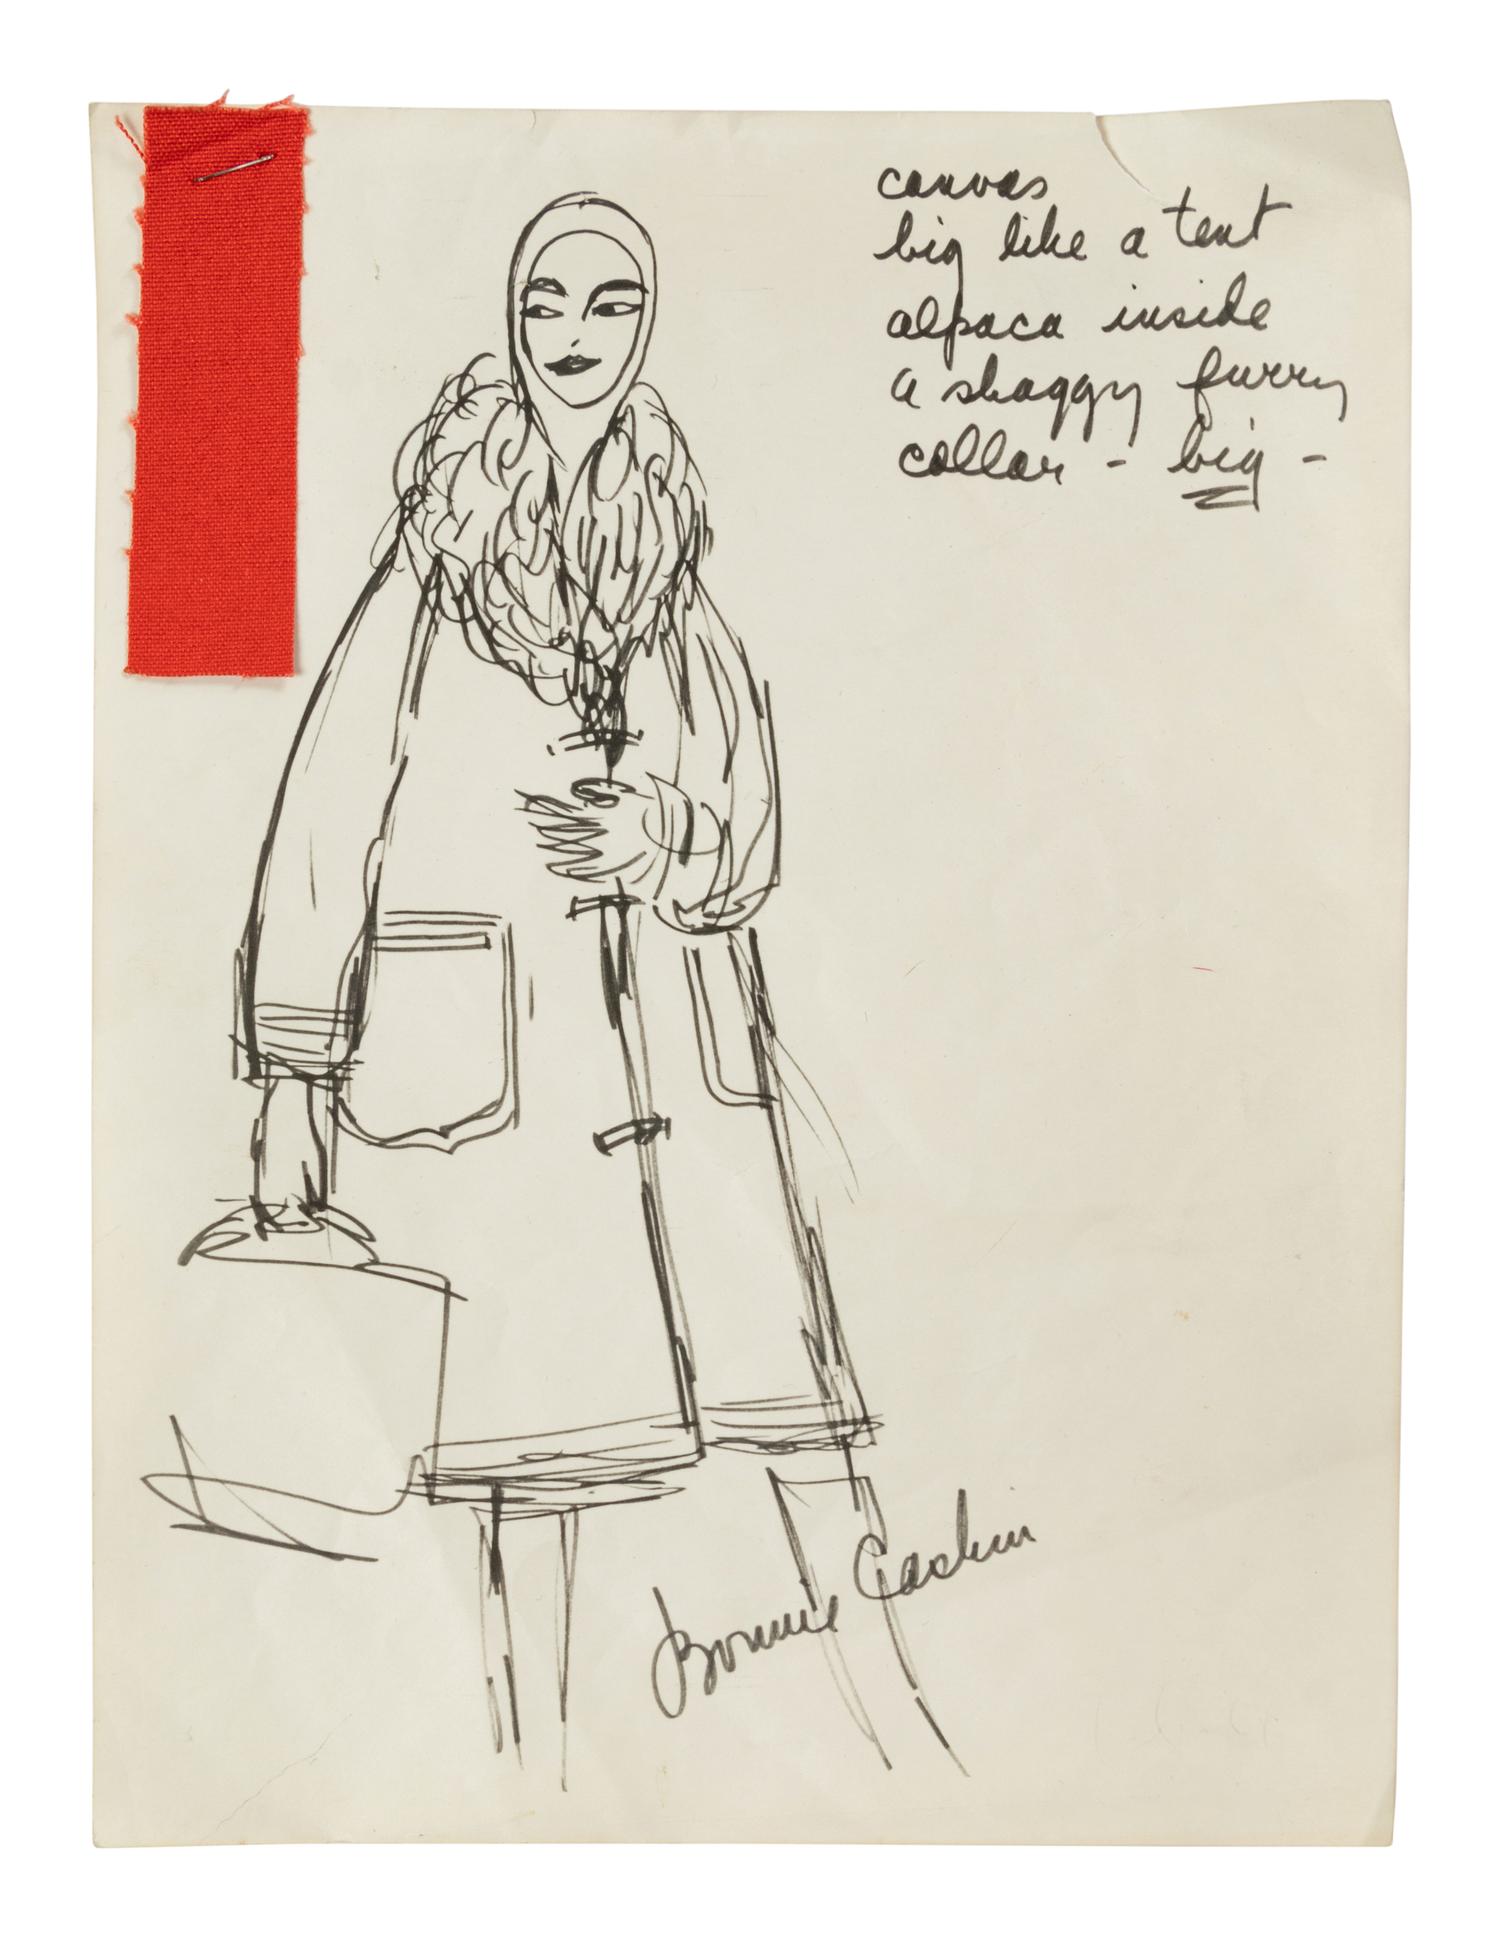 canvas
big like a tent
alpaca inside
a shaggy furry
collar - big -
Bonnie Cashin